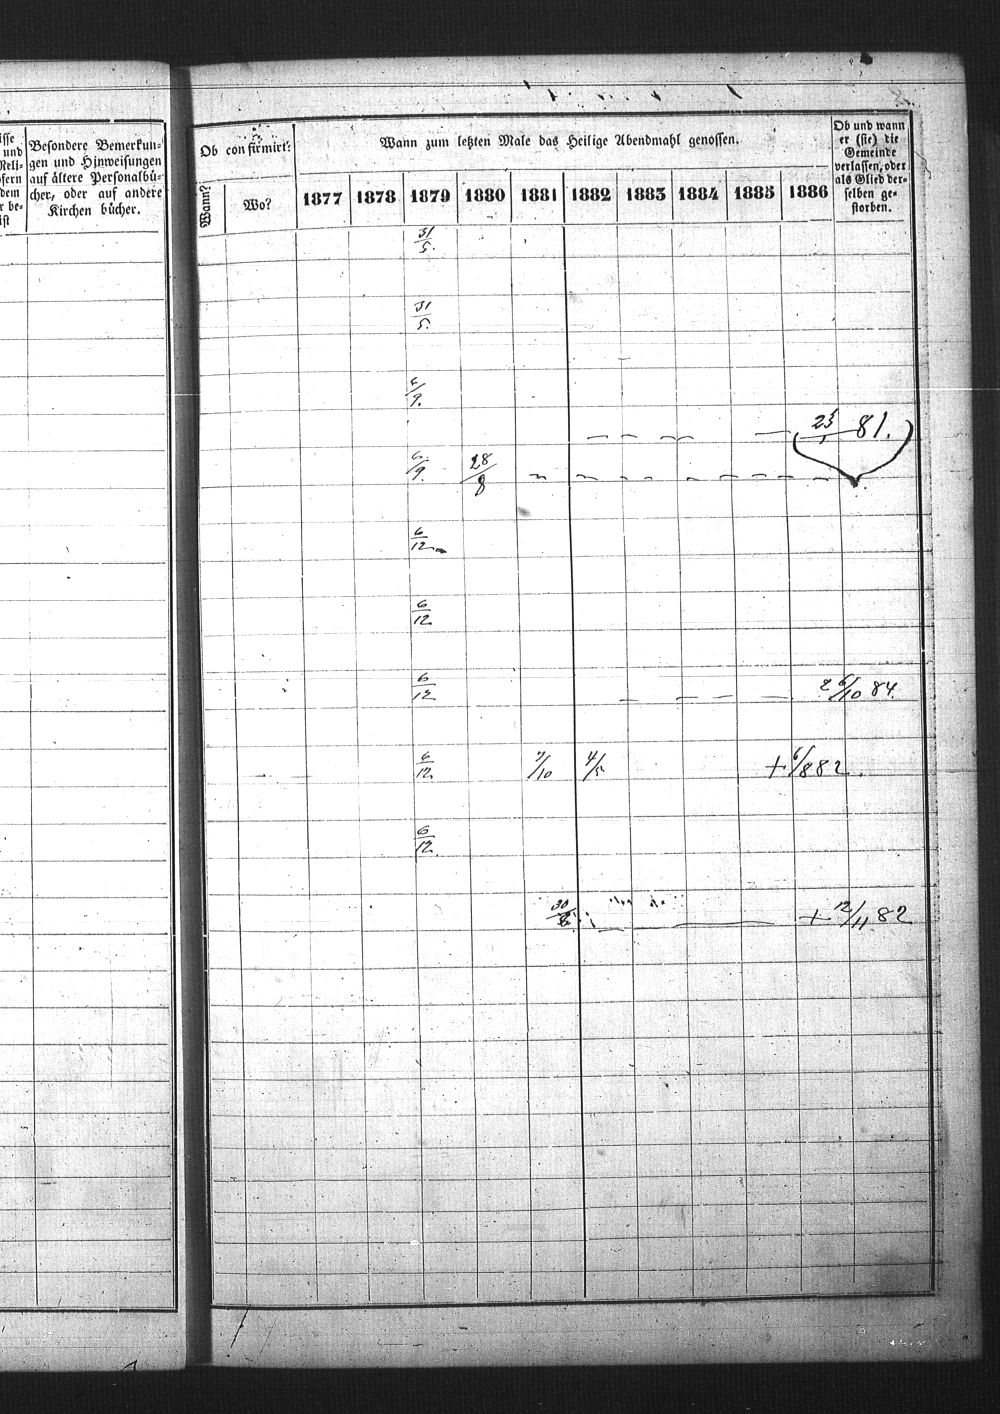 isse
und
Reli-
ofern
dem
r be-
ist
Besondere Bemerkun-
gen und Hinweisungen
auf ältere Personalbü-
cher, oder auf andere
Kirchen bücher.
Ob confirmirt:
Wann?
Wo?
Wann zum letzten Male das Heilige Abendmahl genossen.
1877 1878 1879 1880 1881 1882 1883 1884 1885 1886
Ob und wann
er (sie) die
Gemeinde
verlassen, oder
als Glied der-
selben ge-
storben.
31/5.
31/5.
6/9.
81.
6/9. 28/8
6/12
6/12
6/12 6/10 84.
6/12 7/10 4/5 + 6/8 82.
6/12
30/8 + 12/11 82